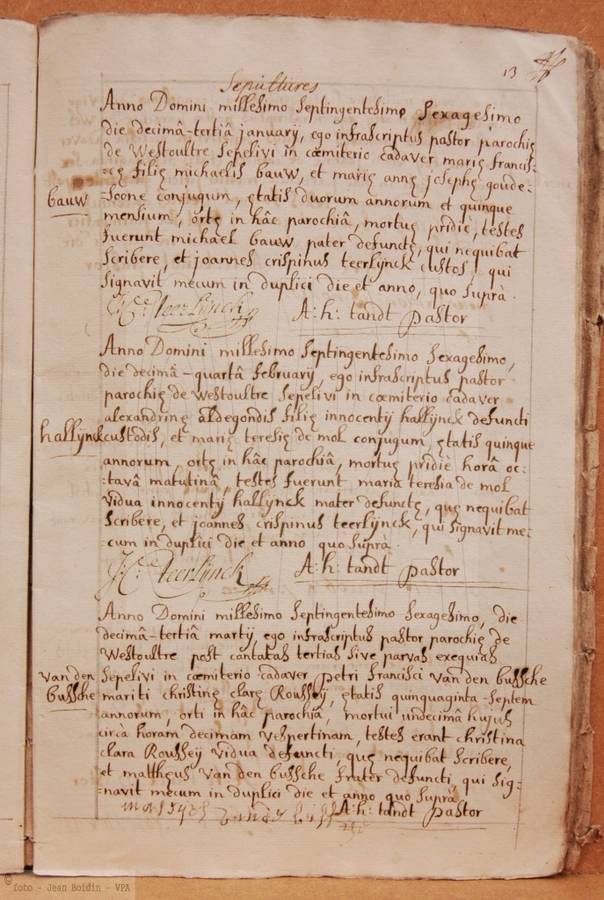 13
Sepultures
Anno Domini millesimo septingentesimo sexagesimo
die decimâ-tertiâ january, ego infrascriptus pastor parochię
de Westoultre sepelivi in cœmiterio cadaver marię francis-
-cę filię michaelis bauw, et marię annę josephę goude-
bauw
-soone conjugum, ętatis duorum annorum et quinque
mensium, ortę in hâc parochiâ, mortuę pridiè, testes
fuerunt michael bauw pater defunctę, qui nequibat
scribere, et joannes crispinus teerlÿnck custos, qui
signavit mecum in duplici die et anno, quo suprà.
J: C: Teerlÿnck
A: h: tandt pastor
Anno Domini millesimo septingentesimo sexagesimo,
die decimâ-quartâ februarÿ, ego infrascriptus pastor
parochię de Westoultre sepelivi in cœmiterio cadaver
alexandrinę aldegondis filię innocentÿ hallÿnck defuncti
hallÿnck
custodis, et marię teresię de mol conjugum, ętatis quinque
annorum ortę in hâc parochiâ, mortuę pridiè horâ oc-
-tavâ matutinâ, testes fuerunt maria teresia de mol
vidua innocentÿ hallÿnck mater defunctę, quę nequibat
scribere, et joannes crispinus teerlÿnck, qui signavit me-
-cum in duplici die et anno quo suprà.
J: C: Teerlÿnck
A: h: tandt pastor
Anno Domini millesimo septingentesimo sexagesimo, die
decimâ-tertiâ martÿ, ego infrascriptus pastor parochię de
Westoultre post cantatas tertias sive parvas exequias
van den bussche
sepelivi in cœmiterio cadaver petri francisci van den bussche
mariti christinę clarę Roussey, ętatis quinquaginta-septem
annorum, orti in hâc parochiâ, mortui undecimâ hujus
circà horam decimam vespertinam, testes erant christina
clara Roussey vidua defuncti, quę nequibat scribere,
et mattheus van den bussche frater defuncti, qui sig-
-navit mecum in duplici die et anno quo suprà
A: h: tandt pastor
© foto - Jean Boidin - VPA